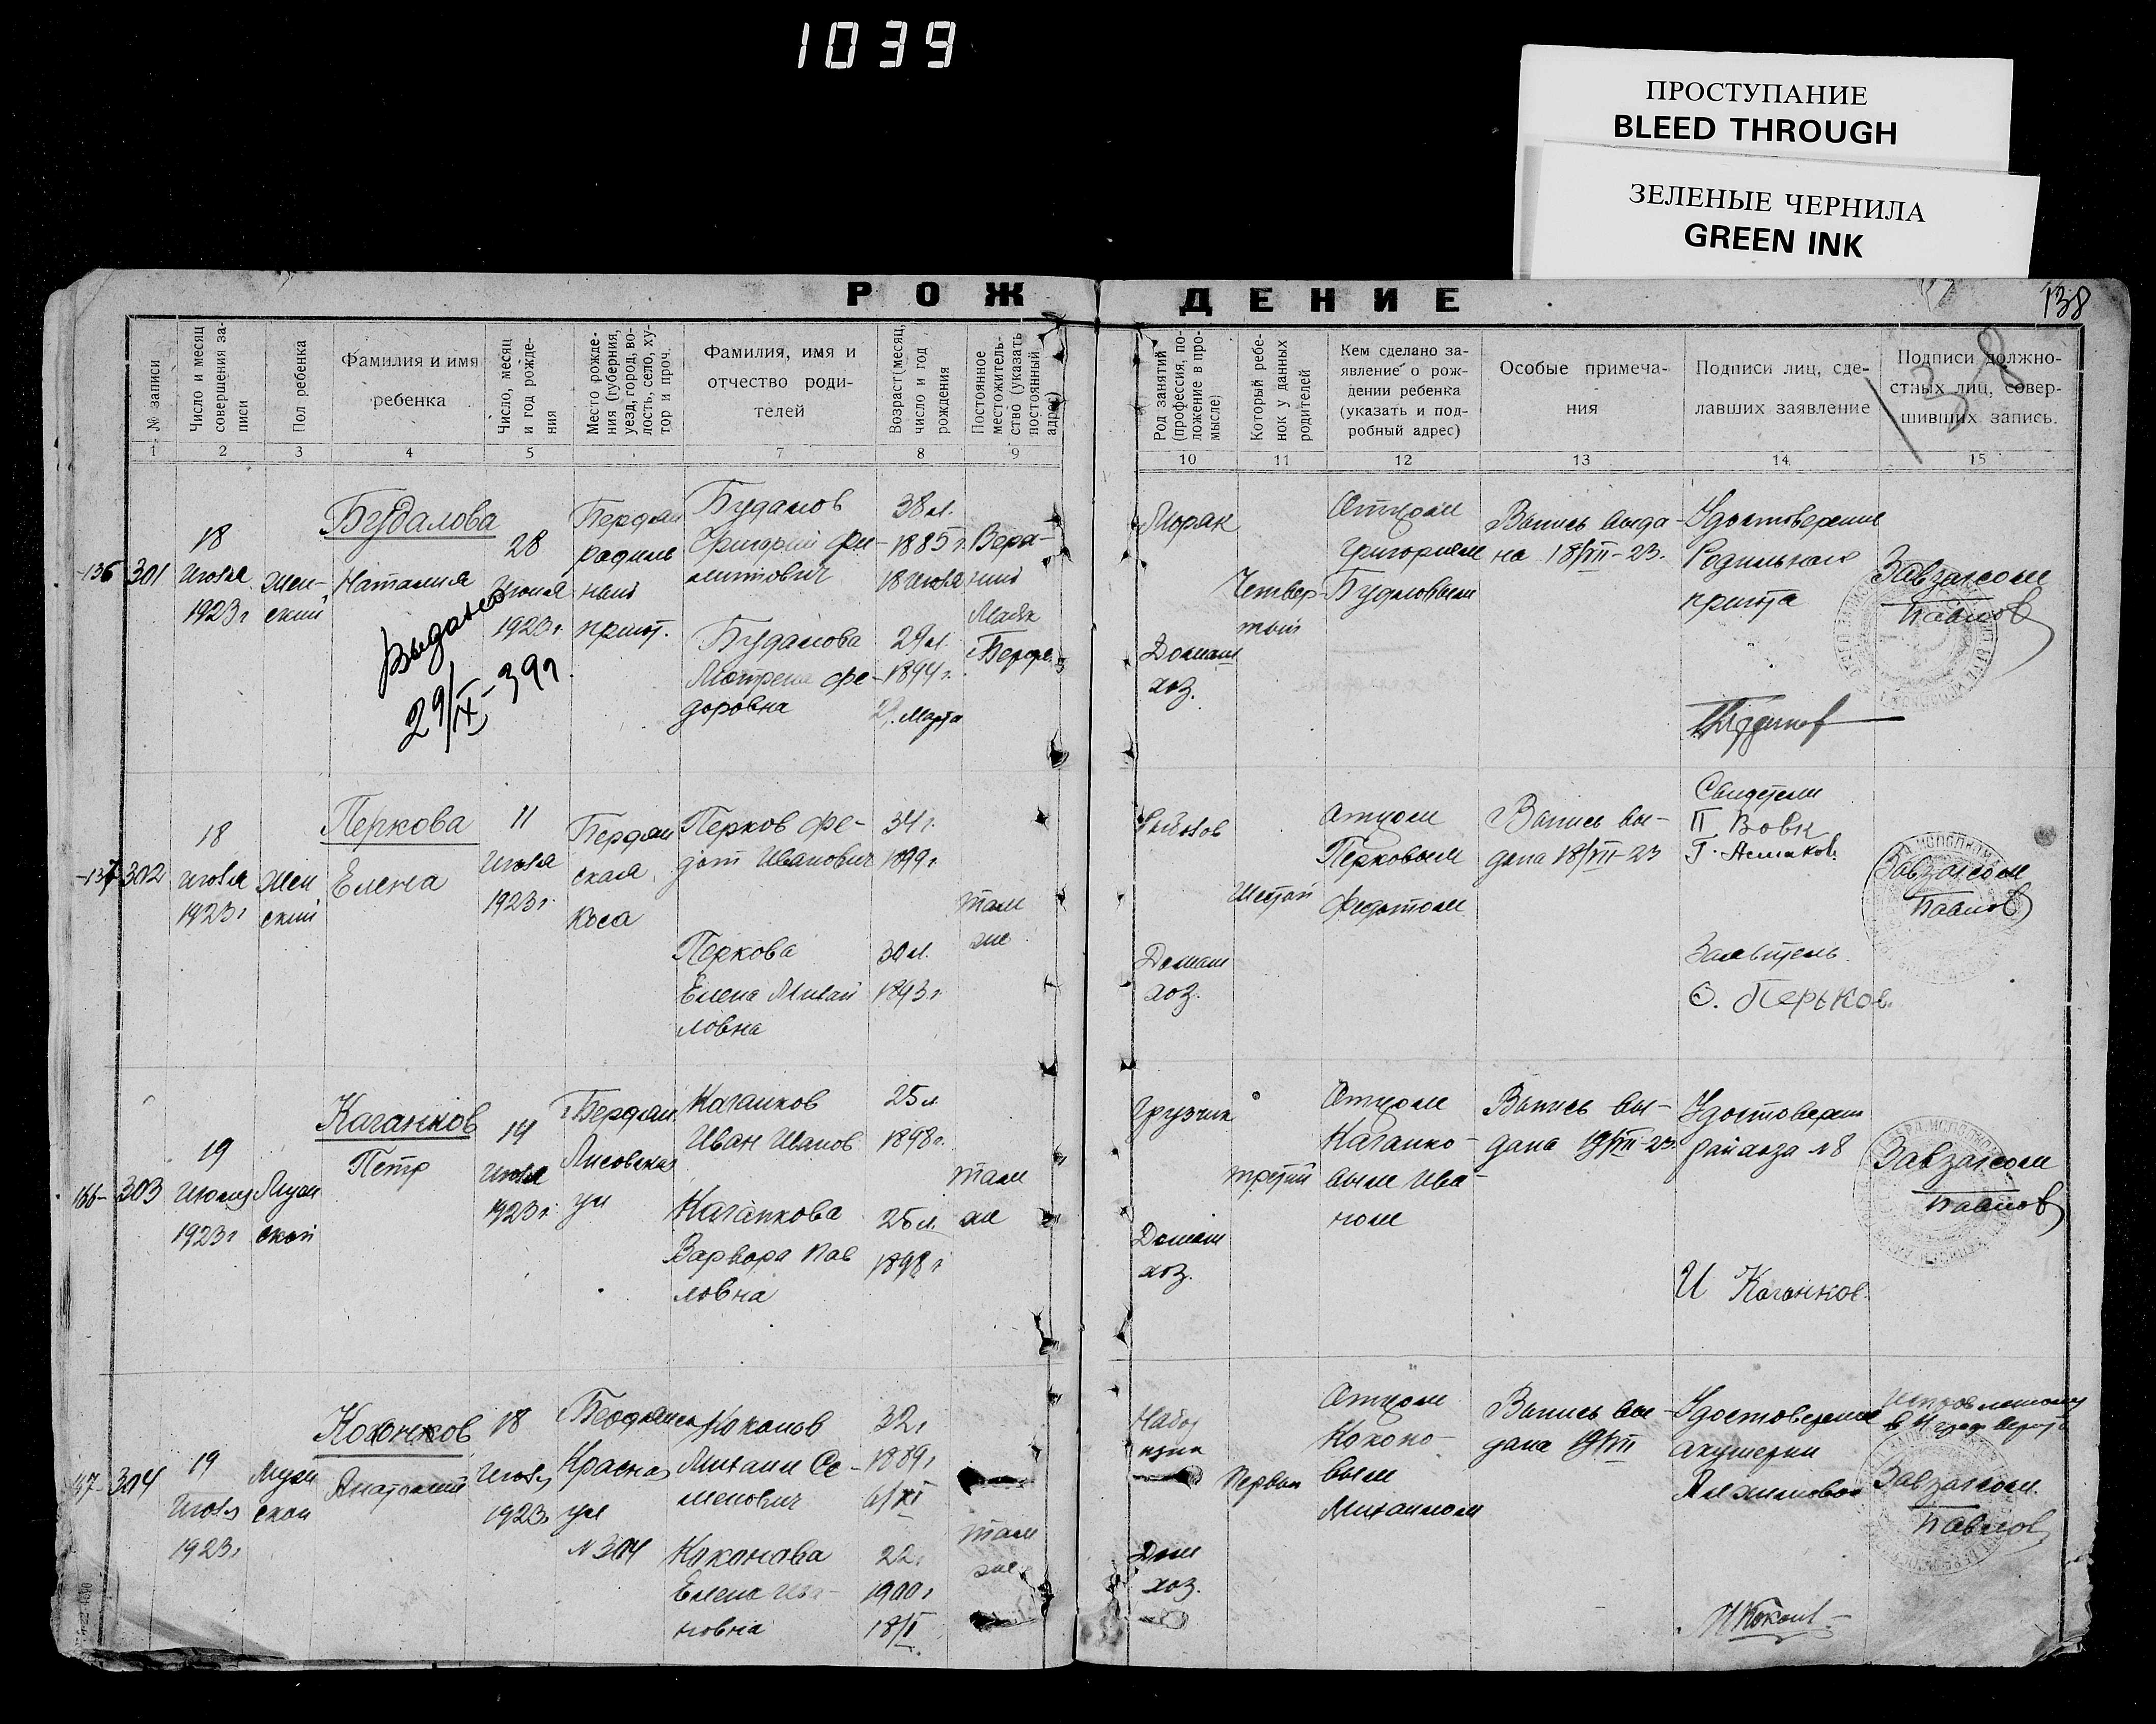 1039
ПРОСТУПАНИЕ
BLEED THROUGH
ЗЕЛЕНЫЕ ЧЕРНИЛА
GREEN INK
РОЖДЕНИЕ
138
138
№ записи
Число и месяц совершения за-
писи
Пол ребенка
Фамилия и имя
ребенка
Число, месяц
и год рожде-
ния
Место рожде-
ния (губерния,
уезд, город, во-
лость, село, ху-
тор и проч.
Фамилия, имя и
отчество роди-
телей
Возраст, месяц,
число и год
рождения
Постоянное
местожитель-
ство (указать
постоянный
адрес)
Род занятий
(профессия, по-
ложение в про-
мысле)
Который ребе-
нок у данных
родителей
Кем сделано за-
явление о рож-
дении ребенка
(указать и под-
робный адрес)
Особые примеча-
ния
Подписи лиц, сде-
лавших заявление
Подписи должно-
стных лиц, совер-
шивших запись.
1 2 3 4 5 7 8 9 10 11 12 13 14 15
136 301
18
июля
1923 г
Жен-
ский
Будалова
Наталия
Выдано
29/IX-39г.
28
июня
1923 г.
Бердян
родиль
ный
приют.
Будалов
Григорий Фи-
липович
Будалова
Матрена Фе-
доровна
38 л.
1885 г.
18 июля
29 л.
1894 г.
Марта
Маяк
Моряк
Домаш
хоз.
Четвер-
тый
Отцом
Григорием
Будаловым
Выпись выда-
на 18/VII-23.
Удостоверение
Родильного
приюта
Завзагсом
Павлов
137 302
18
июля
1923 г
Жен
ский
Перкова
Елена
11
июля
1923 г.
Бердян
ская
коса
Перков Фе-
дот Иванович
Перкова
Елена Михай
ловна
34 г.
1899 г.
30 л.
1893 г.
там
же
Домаш
хоз.
Шестой
Отцом
Перковым
Федотом
Выпись вы-
дана 18/VII-23
Свидетели
П Вовк
Заявитель
Ф. Перьков.
Завзагсом
Павлов
166 303
19
Июля
1923 г
Муж
ской
Каганков
Петр
14
июля
1923 г.
Бердян.
Лисовская
ул
Каганков
Иван Иванов
Каганкова
Варвара Пав
ловна
25 л
1898 г.
25 л.
1898 г
там
же
Грузчик
Домаш
хоз.
третий
Отцом
Каганко-
вым Ива-
ном
Выпись вы-
дана 19/VII-23.
Удостоверен
И Каганков.
Завзагсом
Павлов
304
19
Июля
1923 г
Муж
ской
Коконков
Анатолий
18
Июля
1923 г
Бердянск
Красная
ул
№ 304
Коконов
Михаил Се-
менович
Коконова
Елена
новна
32 г
1889 г
6/XI
22 г
1900 г
18/V
там
же
Дом
хоз.
Первый
Отцом
Коконо-
вым
Михаилом
Выпись вы-
дана 19/VII
Удостоверение
акушерки
Завзагсом.
Павлов